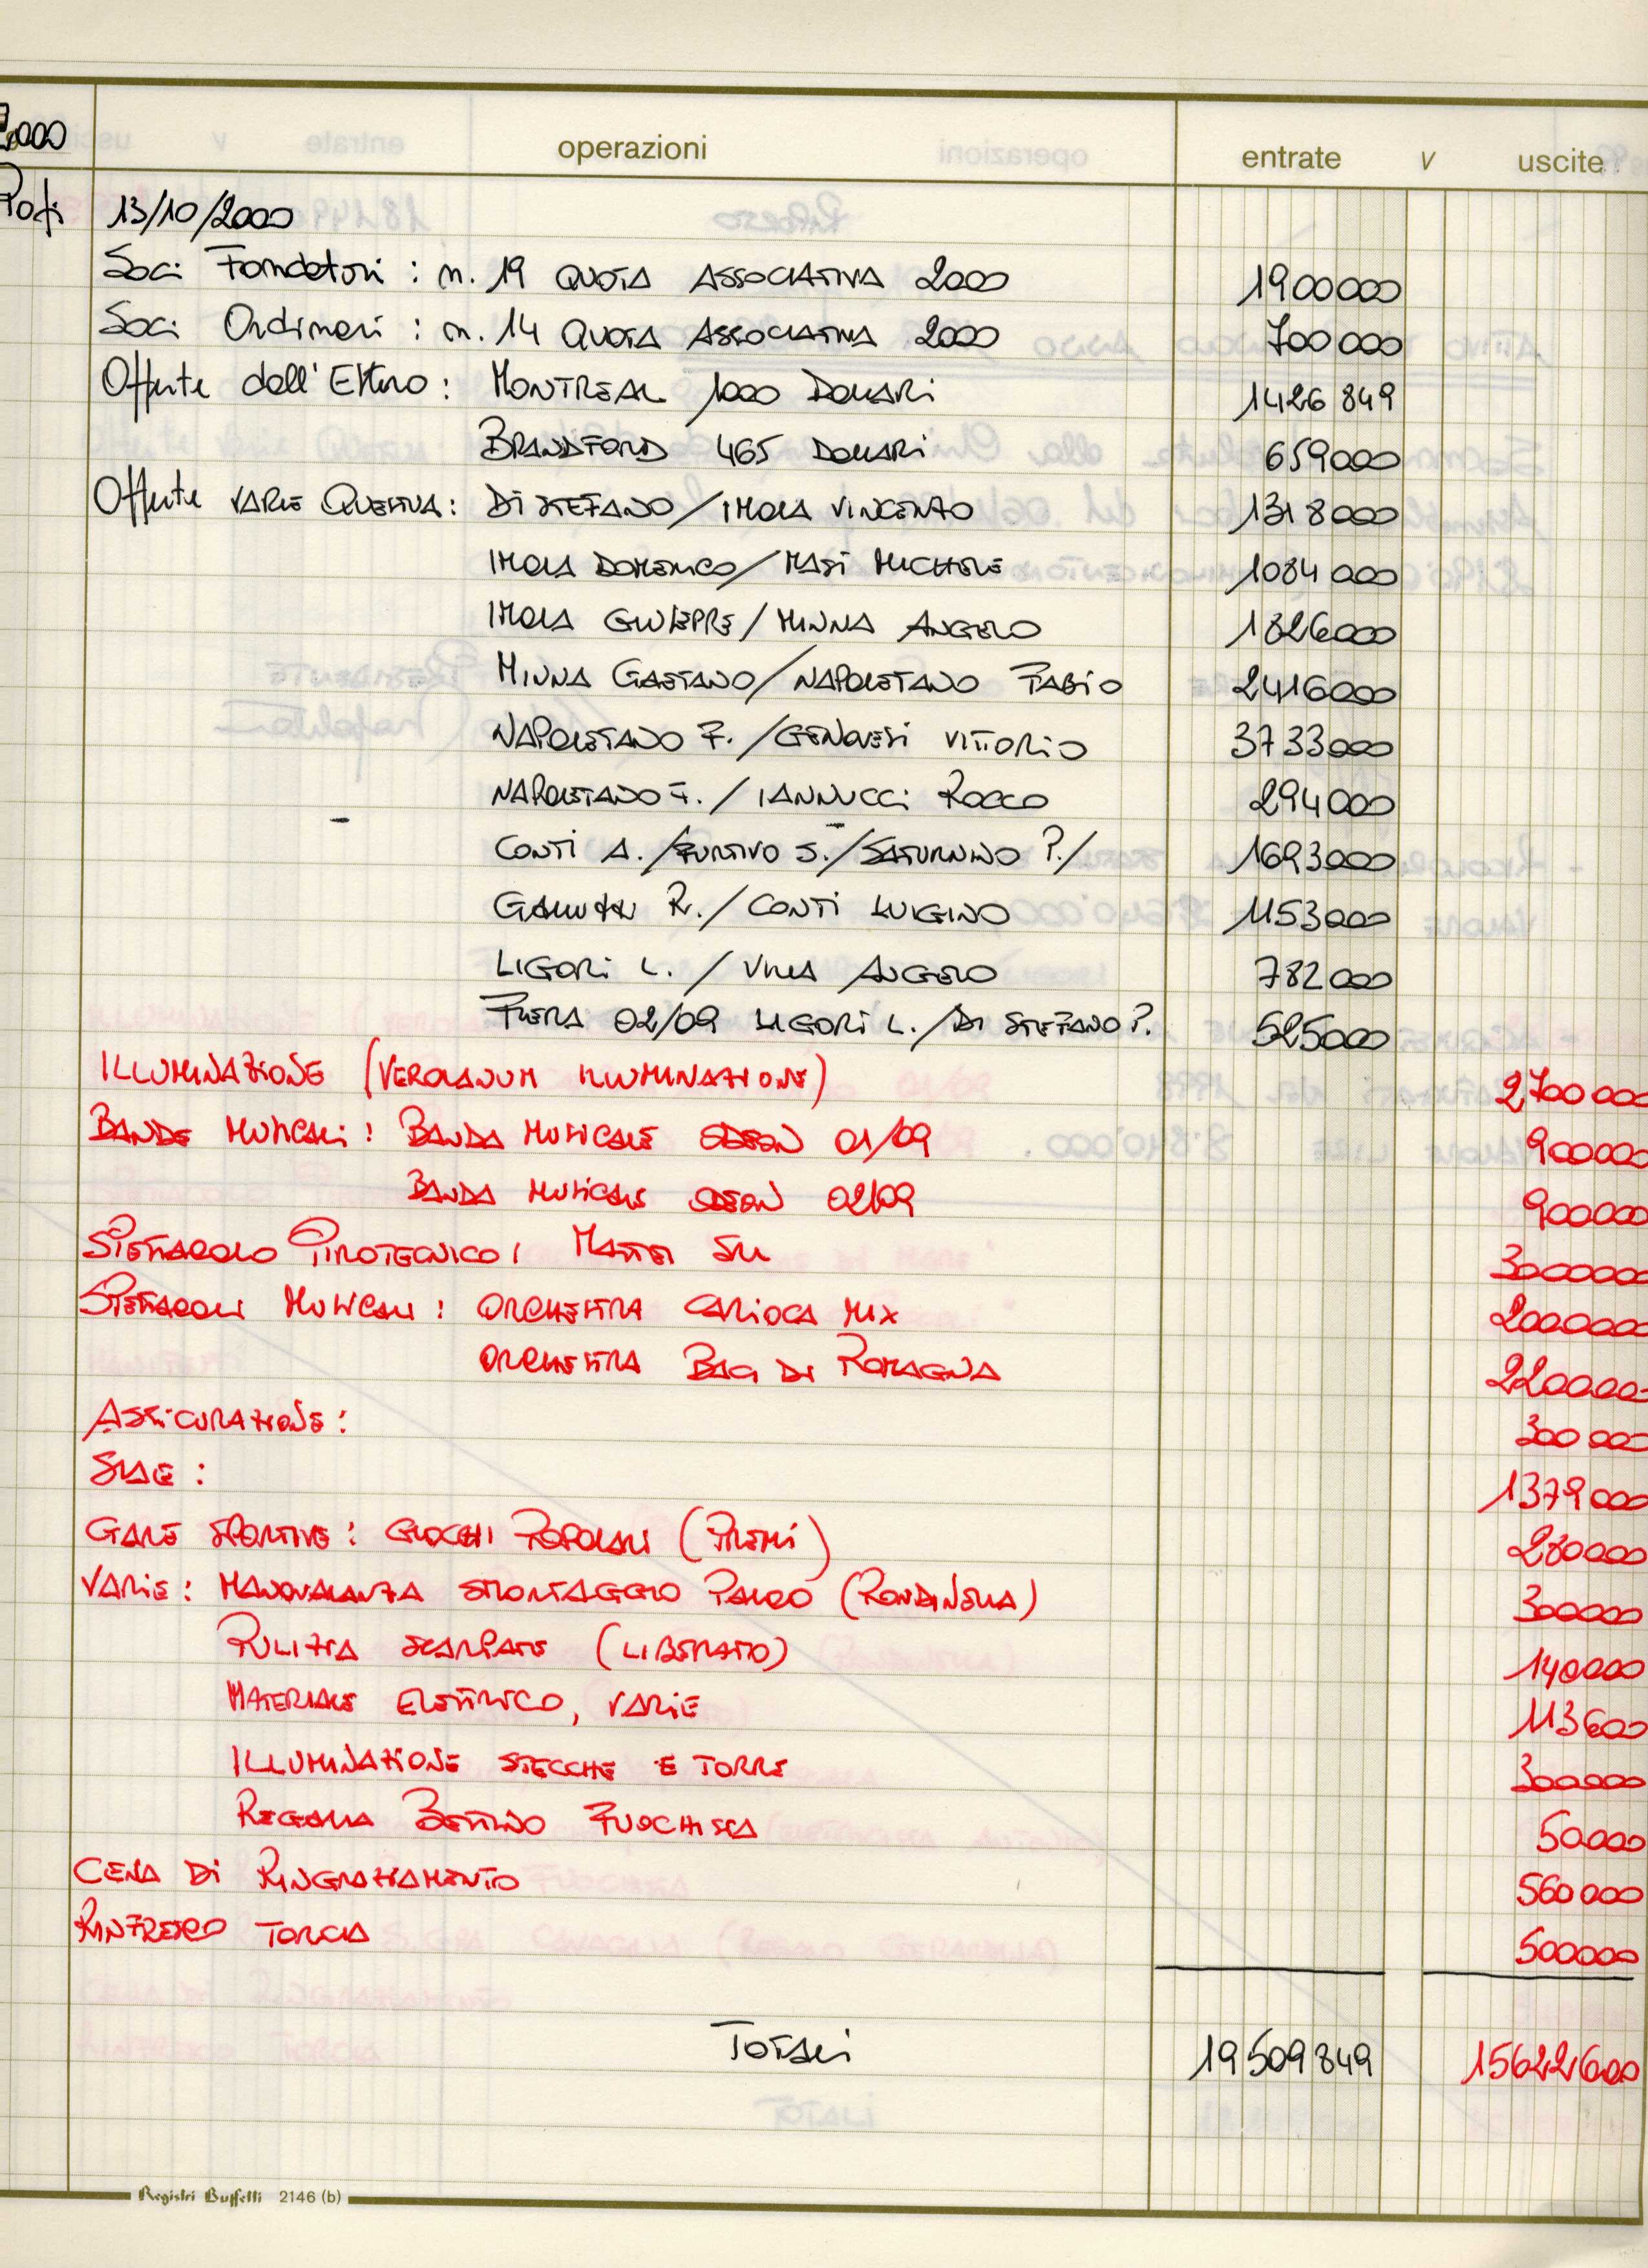 2000 operazioni entrate v uscite
Pofi 13/10/2000
Soci Fondatori : n. 19 QUOTA ASSOCIATIVA 2000 1900000
Soci Ordinari : n. 14 QUOTA ASSOCIATIVA 2000 700000
Offerte dall'Estero : MONTREAL 1000 DOLLARI 1426849
BRANDFORD 465 DOLLARI 659000
Offerte VARIE QUESTUA : DI STEFANO / IMOLA VINCENZO 1318000
IMOLA DOMENICO / MASI MICHELE 1084000
IMOLA GIUSEPPE / MINNA ANGELO 1826000
MINNA GAETANO / NAPOLETANO FABIO 2416000
NAPOLETANO F. / GENOVESI VITTORIO 3733000
NAPOLETANO F. / IANNUCCI ROCCO 294000
CONTI A. / FURTIVO S. / SATURNINO P. / 1693000
R. / CONTI LUIGINO 1153000
LIGORI L. / VILLA ANGELO 782000
FIERA 02/09 LIGORI L. / DI STEFANO P. 525000
ILLUMINAZIONE (VEROLANUM ILLUMINAZIONE) 2700000
BANDE MUSICALI : BANDA MUSICALE ODEON 01/09 900000
BANDA MUSICALE ODEON 02/09 900000
SPETTACOLO PIROTECNICO : MATTEI SRL 3000000
SPETTACOLI MUSICALI : ORCHESTRA CARIOCA MIX 2000000
ORCHESTRA BACI DI ROMAGNA 2200000
ASSICURAZIONE : 300000
SIAE : 1379000
GARE SPORTIVE : GIOCHI POPOLARI (PREMI) 280000
VARIE : MANOVALANZA SMONTAGGIO PALCO (RONDINELLA) 300000
PULIZIA SCARPATE (LIBERATO) 140000
MATERIALE ELETTRICO, VARIE 113600
ILLUMINAZIONE STECCHE E TORRE 300000
REGALIA BETTINO FUOCHISTA 50000
CENA DI RINGRAZIAMENTO 560000
RINFRESCO TORCIA 500000
TOTALI 19509849 15622600
Registri Buffetti 2146 (b)